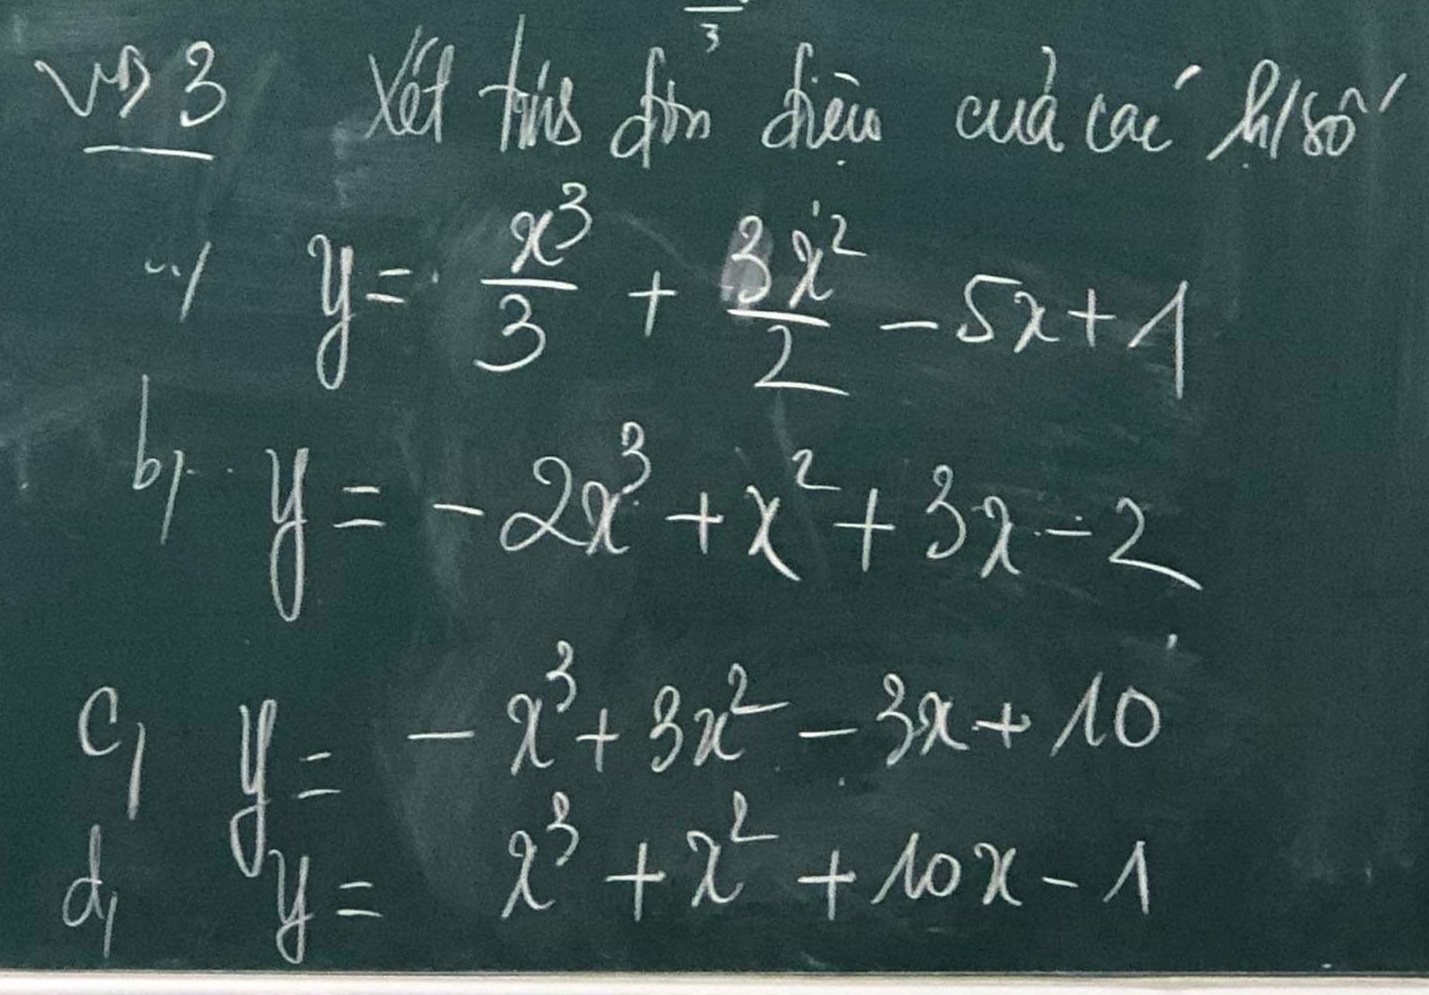 3
VD 3 Xét tính đơn điệu của các h/số
a/ y = x³/3 + 3x²/2 - 5x + 1
b/ y = -2x³ + x² + 3x - 2
c/ y = -x³ + 3x² - 3x + 10
d/ y = x³ + x² + 10x - 1